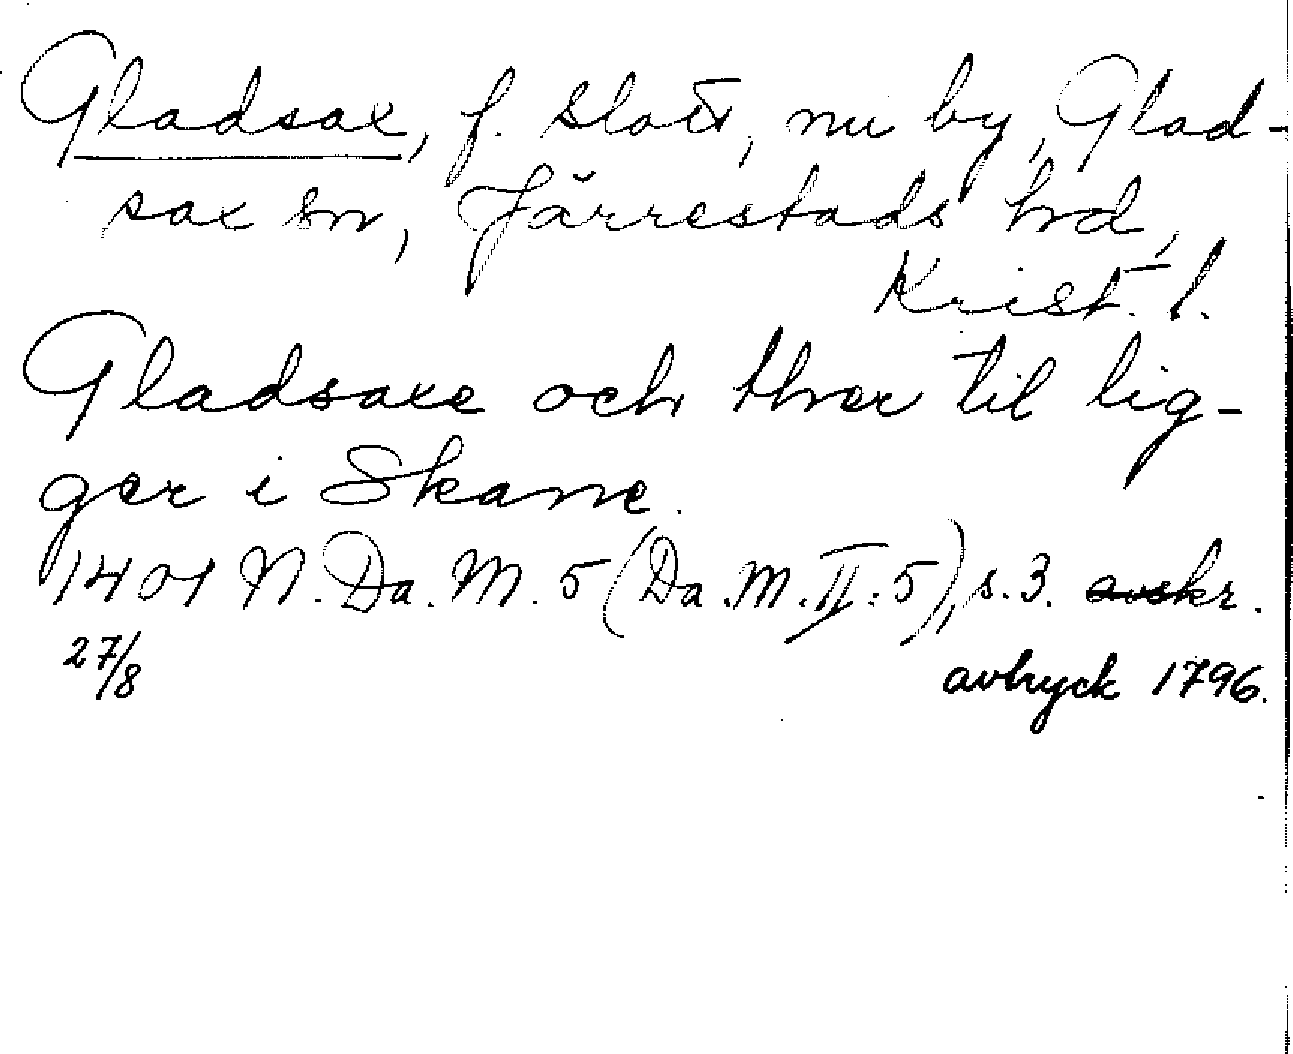 Gladsax, f. slott, nu by, Glad-
sax sn, Järrestads hrd,
Krist. l.
Gladsaxe och thær til lig-
gær i Skane.
1401 N. Da. M. 5 (Da. M. II: 5), s. 3. avskr.
27/8
avtryck 1796.